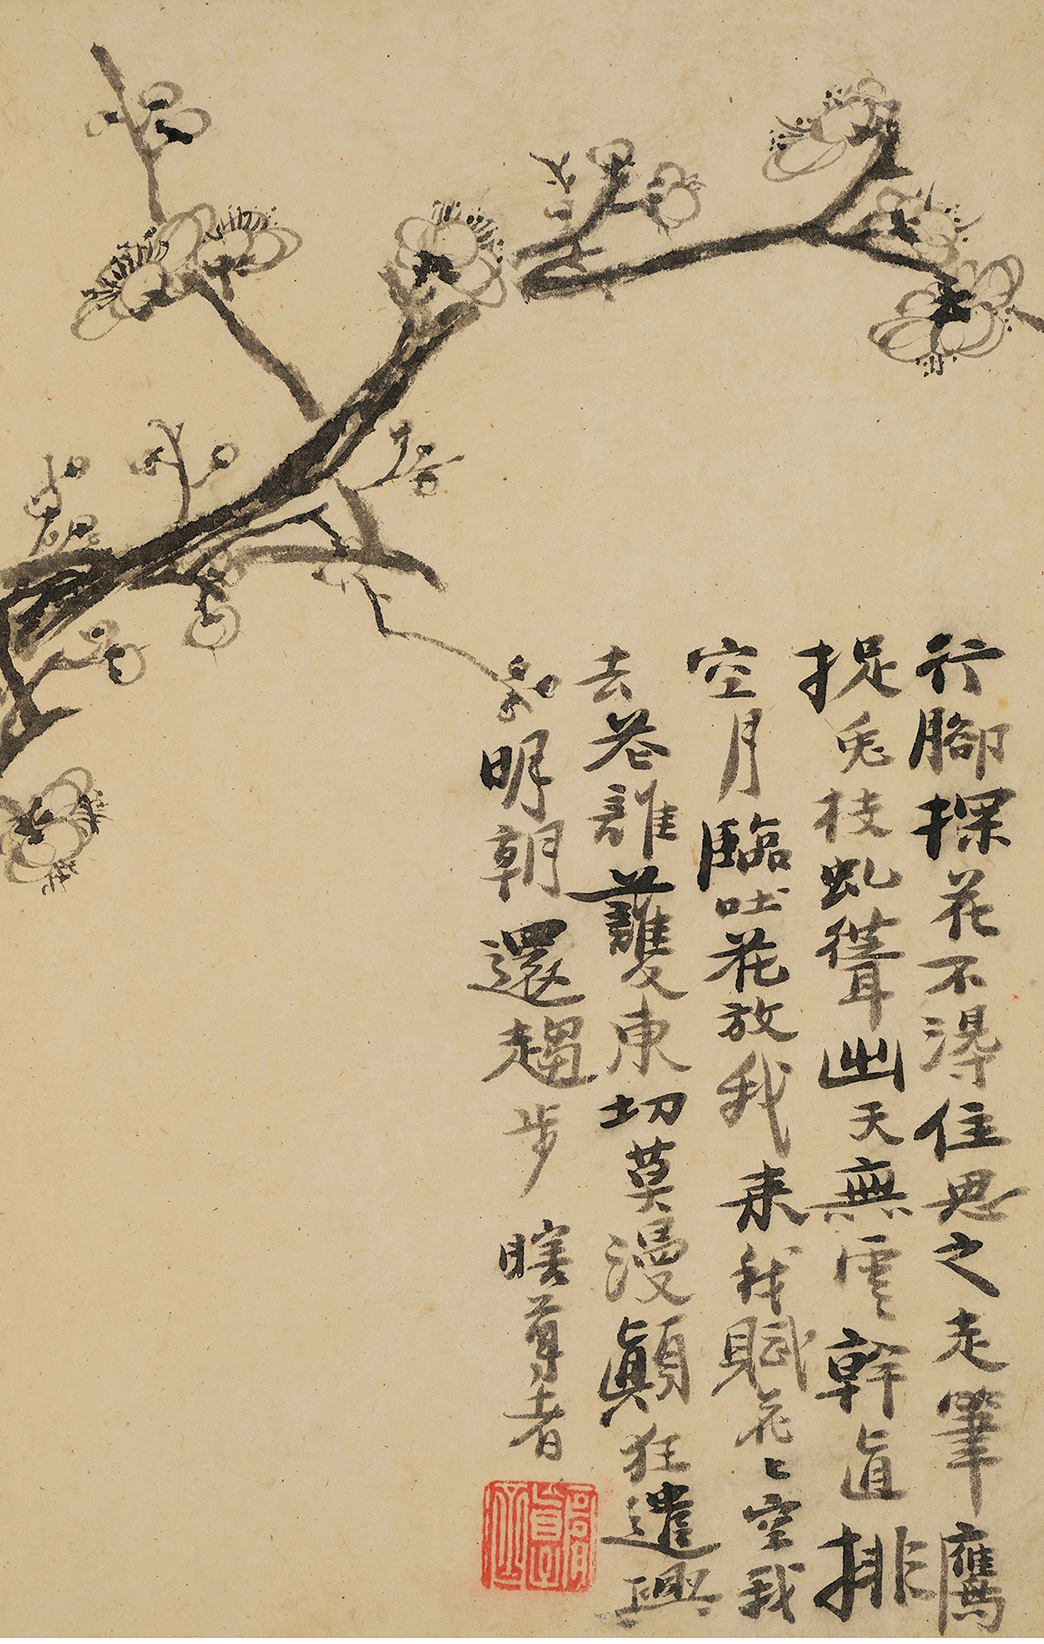 行腳探花不淂住思之走筆鷹
捉兔枝虬聳出天無雲幹直排
空月臨吐花放我来我賦花〻空我
去花誰護東切莫漫顛狂遣興
明朝還趨步 瞎尊者